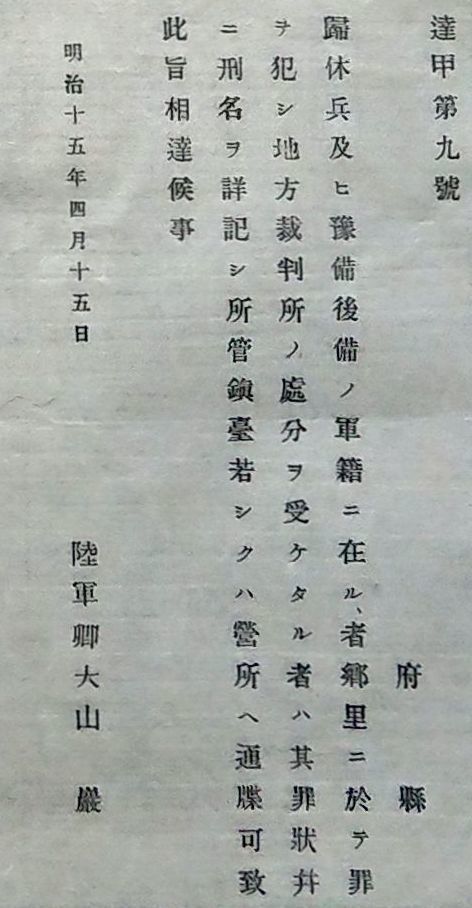 達甲第九號
府縣
歸休兵及ヒ豫備後備ノ軍籍ニ在ル、者郷里ニ於テ罪
ヲ犯シ地方裁判所ノ處分ヲ受ケタル者ハ其罪狀幷
ニ刑名ヲ詳記シ所管鎭臺若シクハ營所ヘ通牒可致
此旨相達候事
明治十五年四月十五日
陸軍卿大山巖